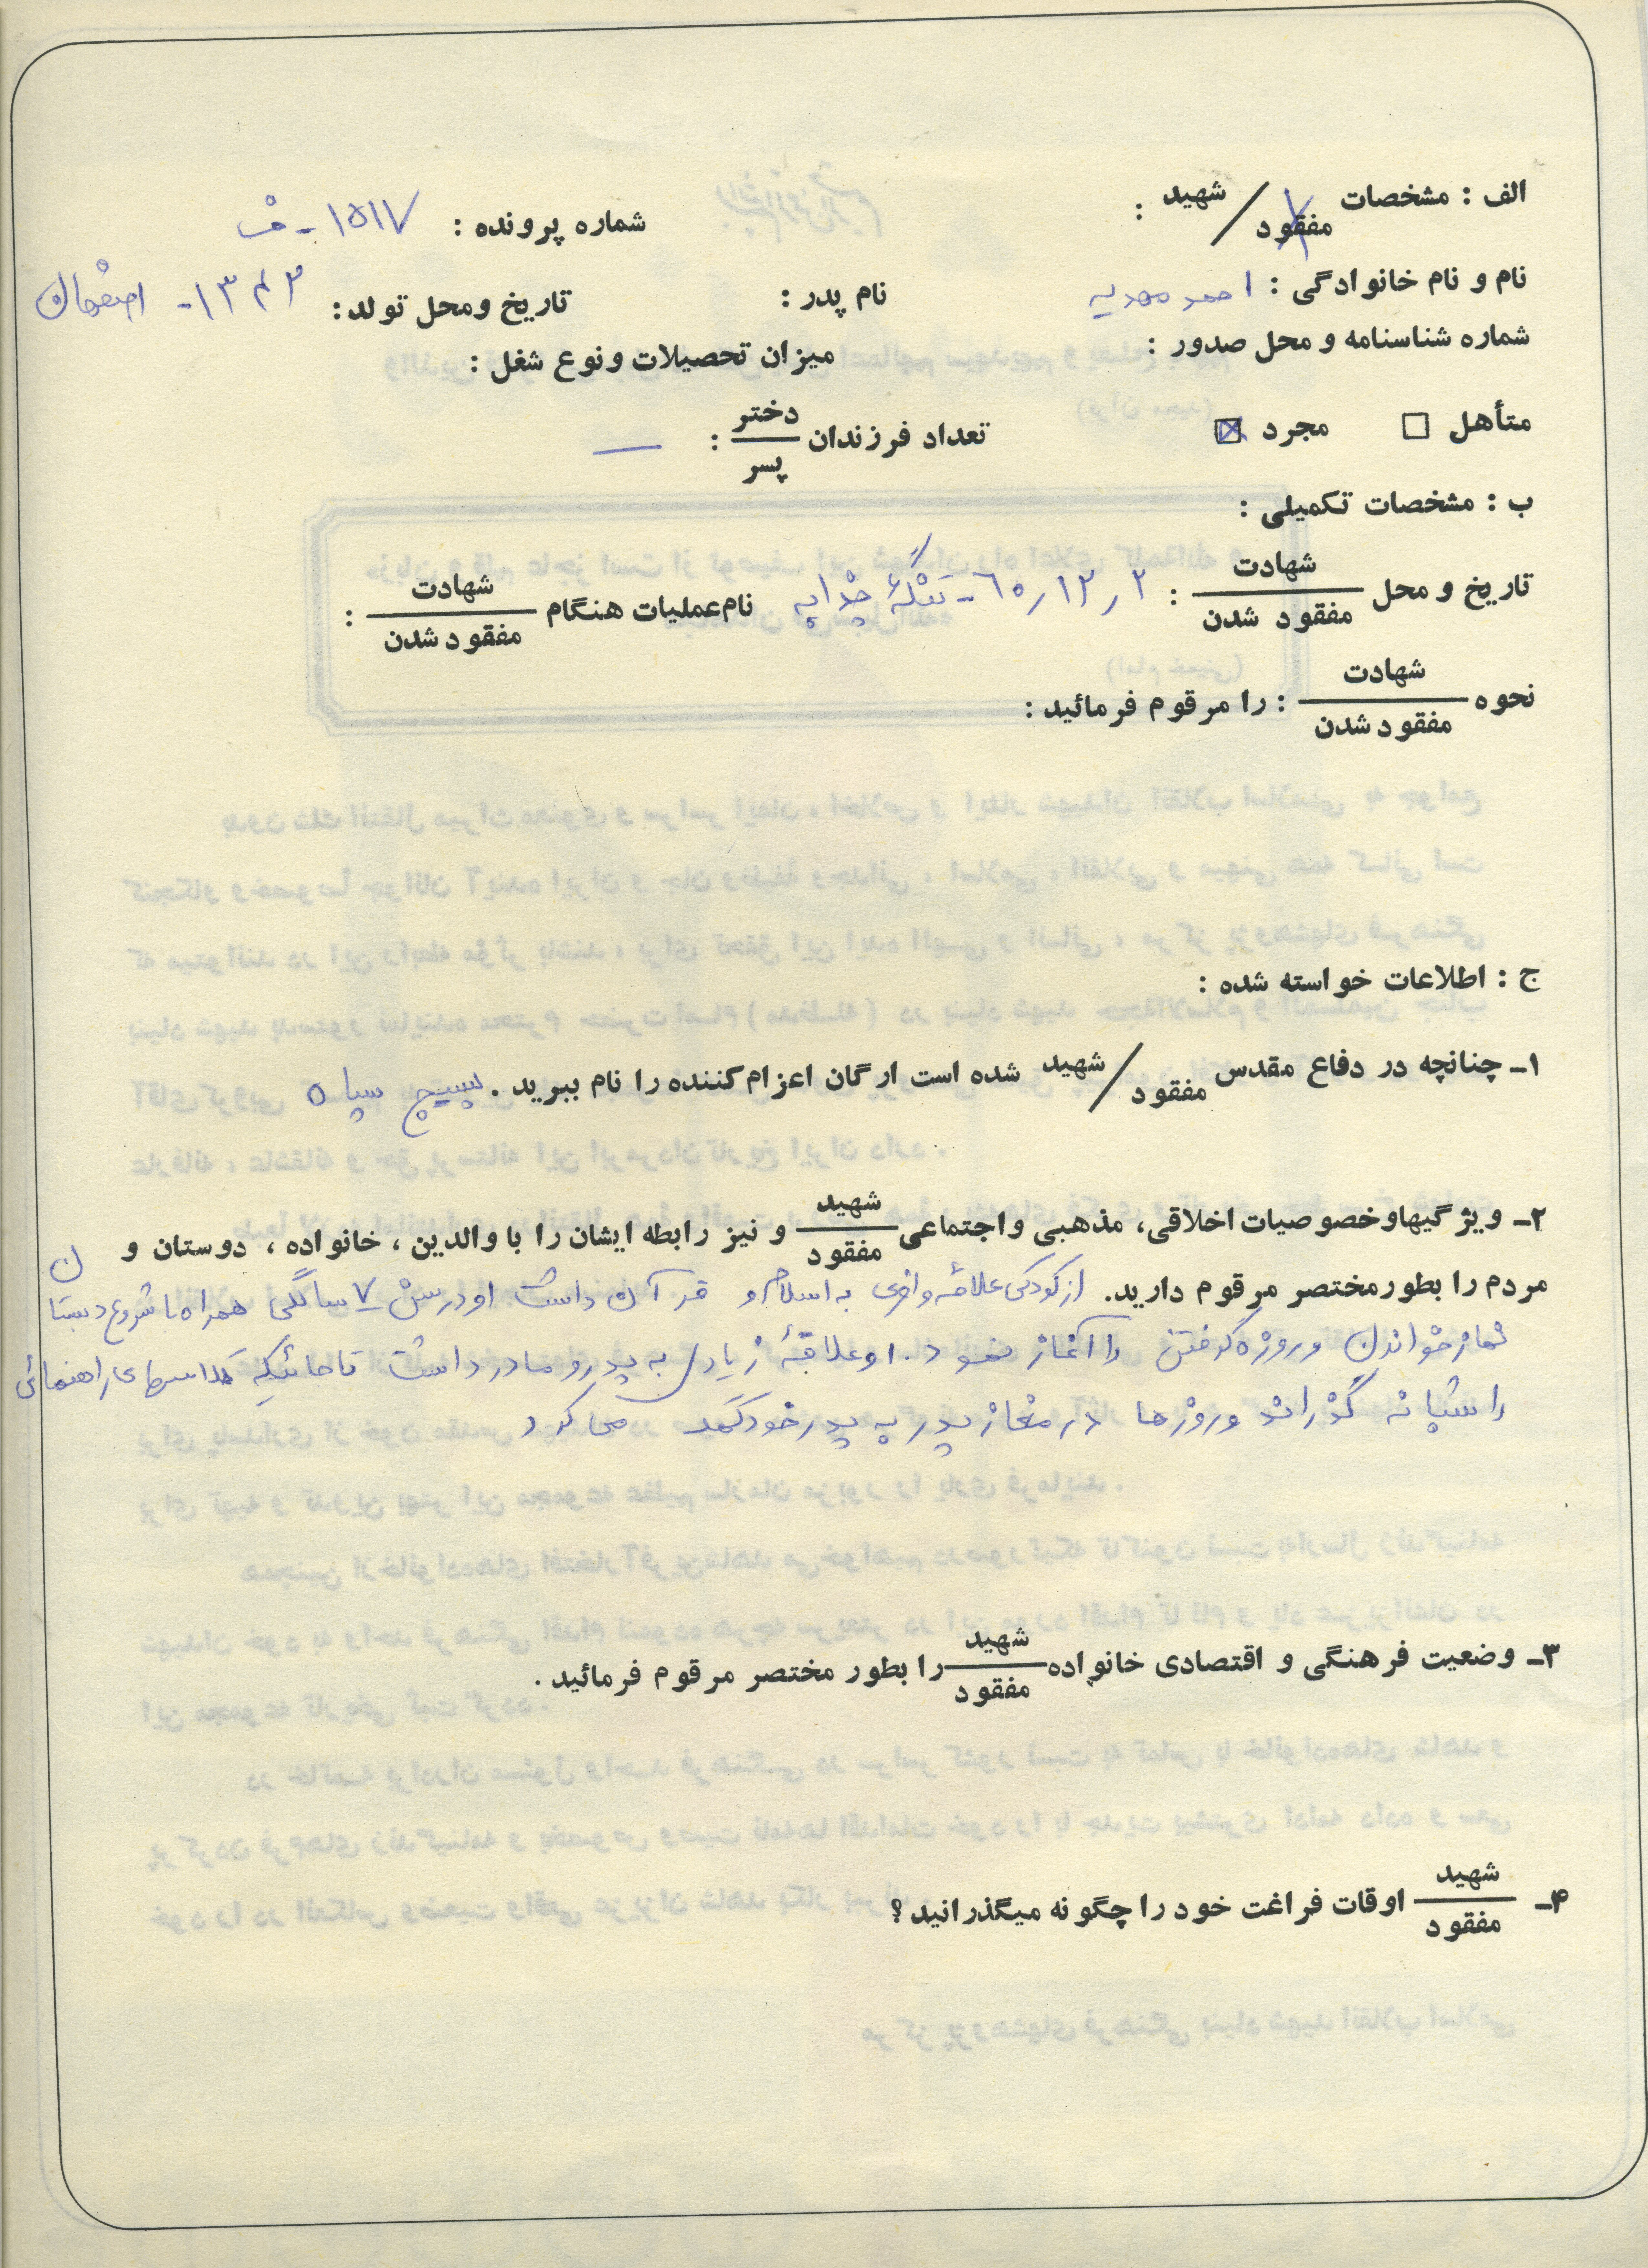 الف : مشخصات شهید / مفقود :
شماره پرونده : ۱۵۱۷ - ف
نام و نام خانوادگی : احمد مهدیه
نام پدر :
تاریخ ومحل تولد : ۱۳۴۲ - اصفهان
شماره شناسنامه و محل صدور :
میزان تحصیلات ونوع شغل :
متأهل □ مجرد ☒
تعداد فرزندان دختر / پسر : —
ب : مشخصات تکمیلی :
تاریخ و محل شهادت / مفقود شدن : ۲ ر ۱۲ ر ۶۰ - تنگهٔ چذابه نام عملیات هنگام شهادت / مفقود شدن :
نحوه شهادت / مفقود شدن : را مرقوم فرمائید :
ج : اطلاعات خواسته شده :
۱ـ چنانچه در دفاع مقدس شهید / مفقود شده است ارگان اعزام کننده را نام ببرید . بسیج سپاه
۲ـ ویژگیهاوخصوصیات اخلاقی، مذهبی واجتماعی شهید / مفقود و نیز رابطه ایشان را با والدین ، خانواده ، دوستان و
مردم را بطورمختصر مرقوم دارید. از کودکی علاقه وافری به اسلام و قرآن داشت او درسن ۷ سالگی همراه با شروع دبستان
نماز خواندن وروزه گرفتن را آغاز نمود . او علاقهٔ زیادی به پدرو مادر داشت تا جائیکه کلاسهای راهنمائی
را شبانه گذراند وروزها در مغازه پدر به پدر خود کمک می کرد
۳ـ وضعیت فرهنگی و اقتصادی خانواده شهید / مفقود را بطور مختصر مرقوم فرمائید .
۴ـ شهید / مفقود اوقات فراغت خود را چگونه میگذرانید ؟